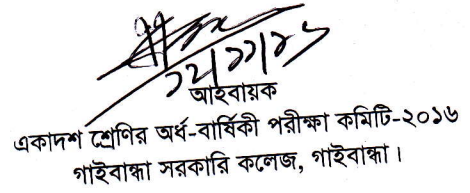 ১২/১১/১৬
আহবায়ক
একাদশ শ্রেণির অর্ধ-বার্ষিকী পরীক্ষা কমিটি-২০১৬
গাইবান্ধা সরকারি কলেজ, গাইবান্ধা।